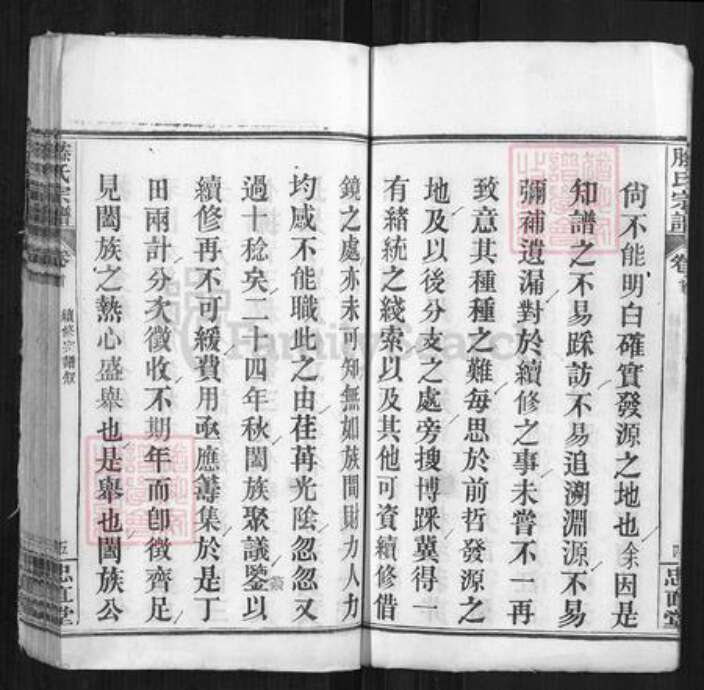 滕氏宗譜
卷首
四
忠直堂
尙不能明白確實發源之地也余因是
知譜之不易踩訪不易追溯淵源不易
彌補遺漏對於續修之事未嘗不一再
致意其種種之難每思於前哲發源之
地及以後分支之處旁搜博踩冀得一
有緒統之綫索以及其他可資續修借
鏡之處亦未可知無如族間財力人力
均感不能職此之由荏苒光陰忽忽又
過十稔矣二十四年秋闔族聚議鑒以
續修再不可緩費用亟應籌集於是丁
田兩計分次徵收不期年而卽徵齊足
見闔族之熱心盛舉也是舉也闔族公
滕氏宗譜
卷首
續修宗譜叙
五
忠直堂
FamilySearch